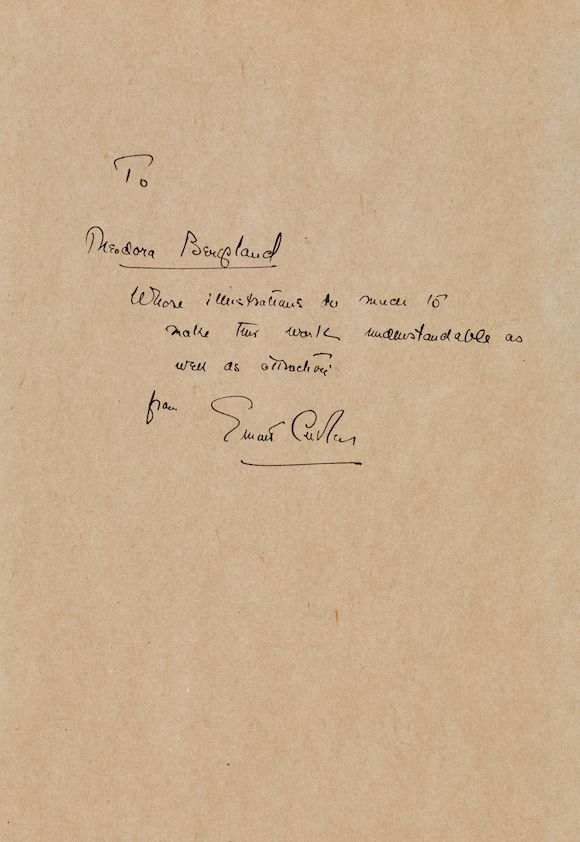 To
Theodora Bergsland
Whose illustrations do much to
make this work understandable as
well as attractive
from
Stuart Cutler